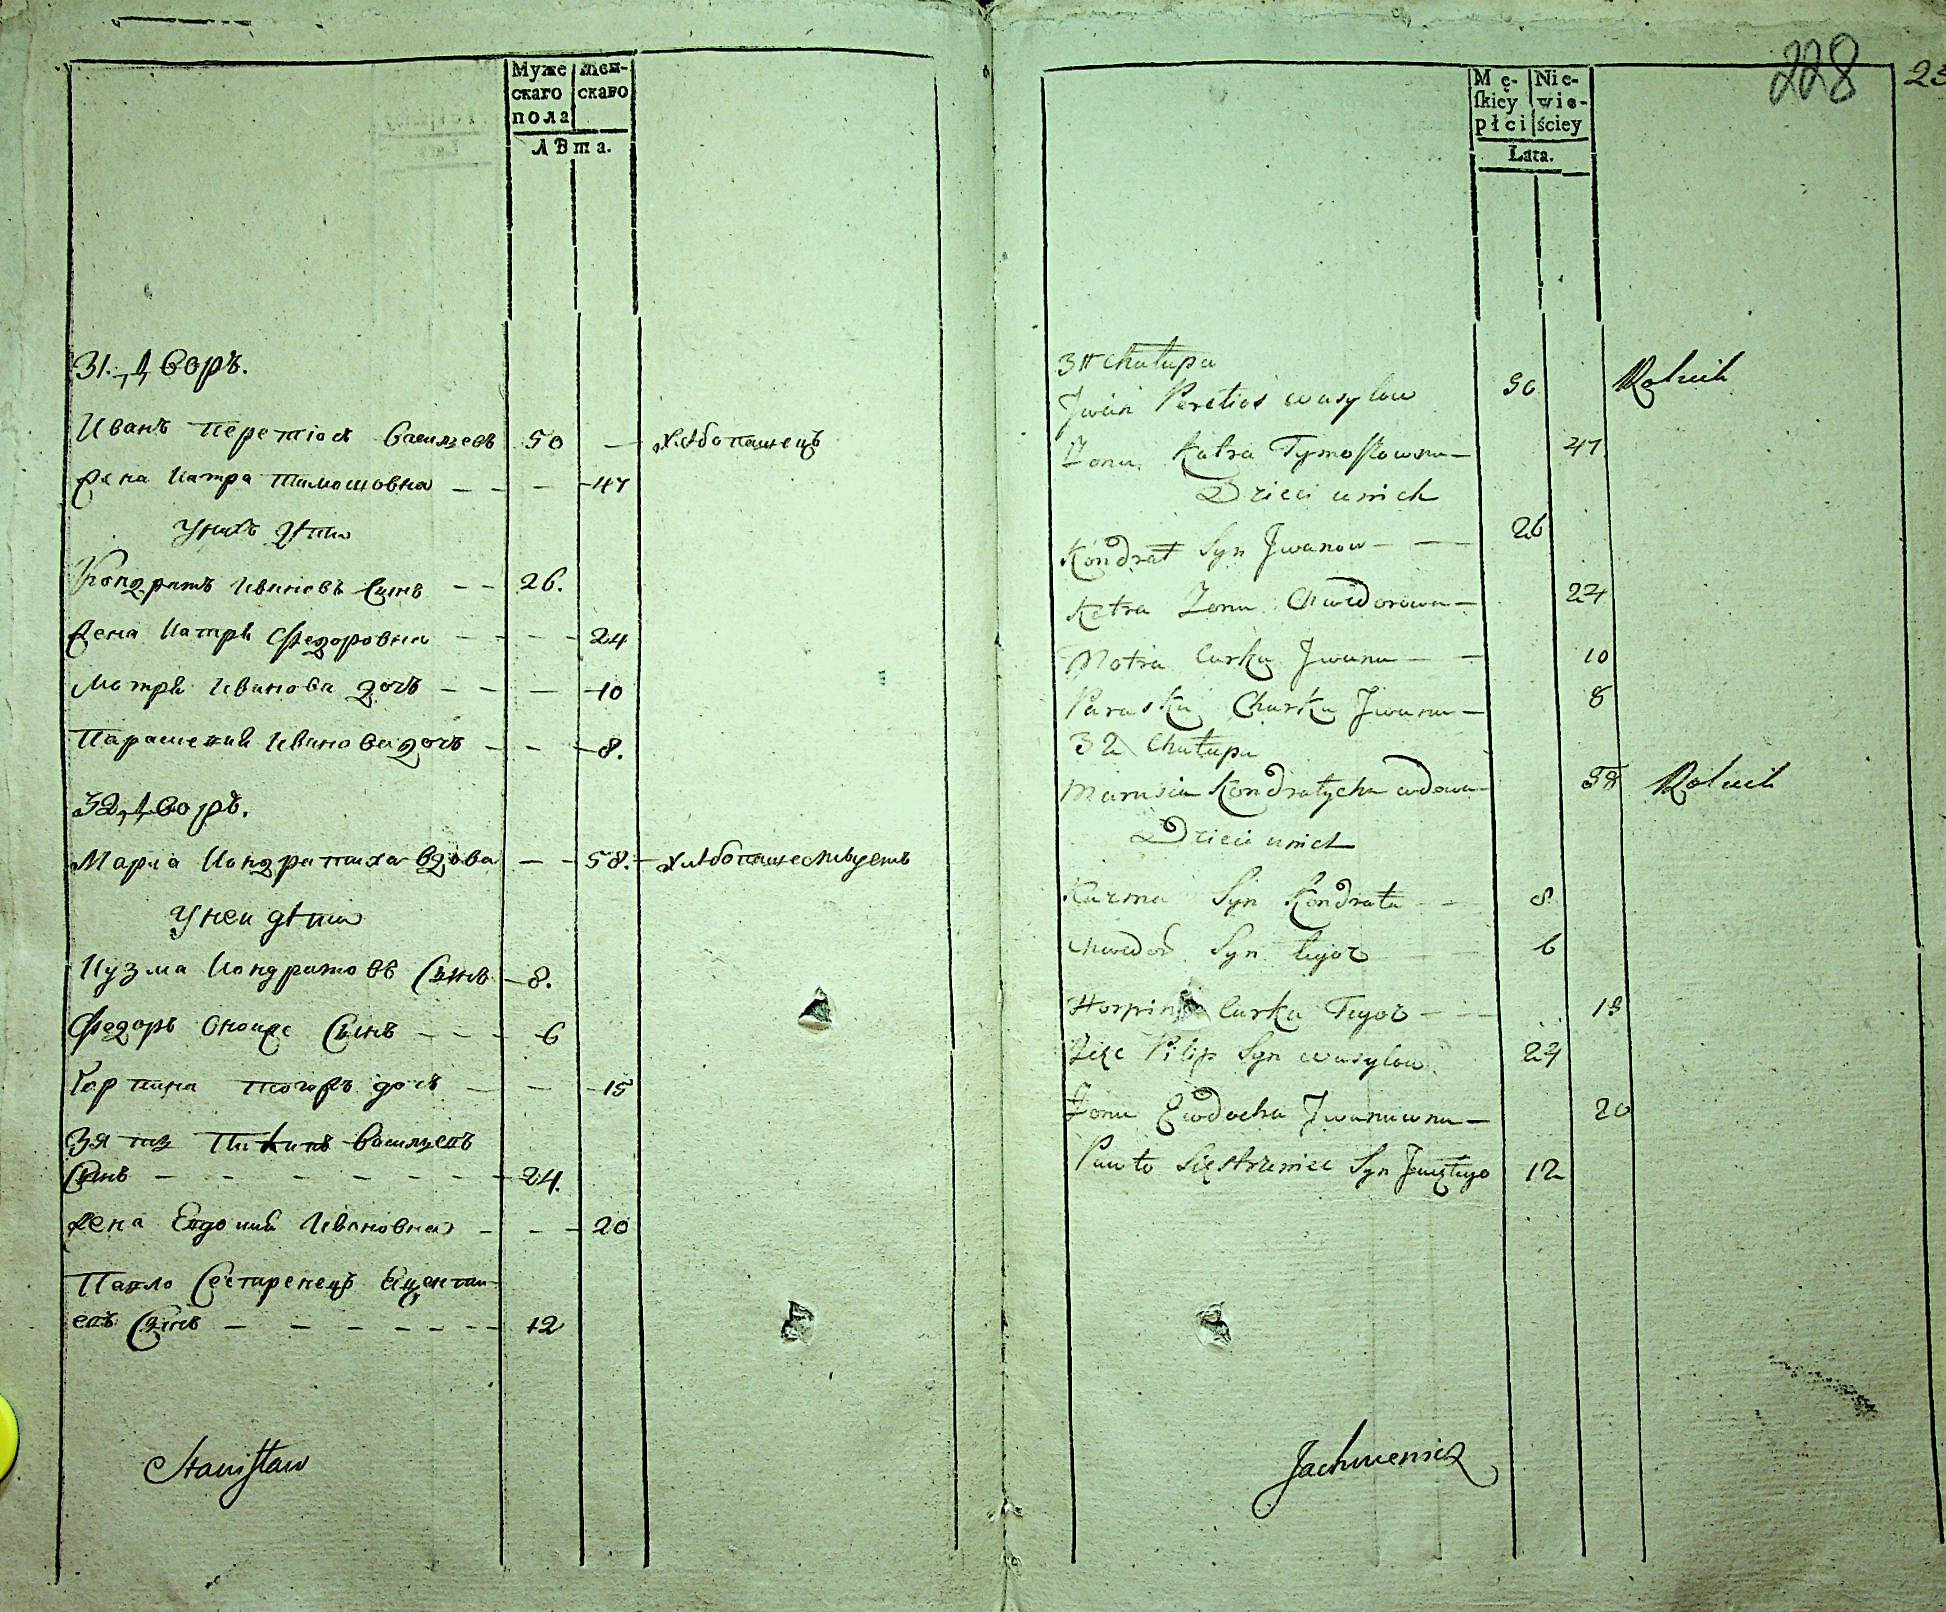 Муже
скаго
пола
жен-
скаго
лѣта.
31. Дворъ.
Иванъ Перетіоса Васильевъ 50 — хлѣбопашецъ
Жена Катра Тимошовна — — — 47
У нихъ дѣти
Кондратъ Ивановъ Сынъ — — 26.
Жена Катря Федоровна — — — 24
Мотря Иванова дочь — — — 10
Параския Иванова дочь — — — 8.
32. Дворъ.
Мария Кондратиха вдова — — 58. — хлѣбопашествуетъ
У неи дѣти
Кузма Кондратовъ Сынъ — 8.
Федоръ Сынъ — — — 6
Горпина тогожъ дочь — — 15
Зять Васильевъ
Сынъ — — — — — — — 24.
Жена Евдокия Ивановна — — — 20
Павло Сестренецъ
евъ Сынъ — — — — — — 12
Stanisław
228
23
Mę-
ſkiey
płci
Nie-
wie-
ściey
Lata.
31 Chałupa
Jwan Peretios Wasylow 50 Rolnik
Żona Katra Tymoszowna — 47
Dzieci u nich
Kondrat Syn Jwanow — — 26
Katra Żona Chwedorowna — 24
Motra Curka Jwana — — 10
Paraska Churka Jwana — 8
32 Chałupa
Marusia Kondratycha wdowa — 58 Rolnik
Dzieci u nich
Kuzma Syn Kondrata — — 8
Chwedor Syn tegoż — — 6
Horpina Curka Tegoż — — 15
Zięc Pilip Syn Wasylow 24
Żona Ewdocha Jwanowna — 20
Pawło Siestrzeniec Syn 12
Jachimowicz